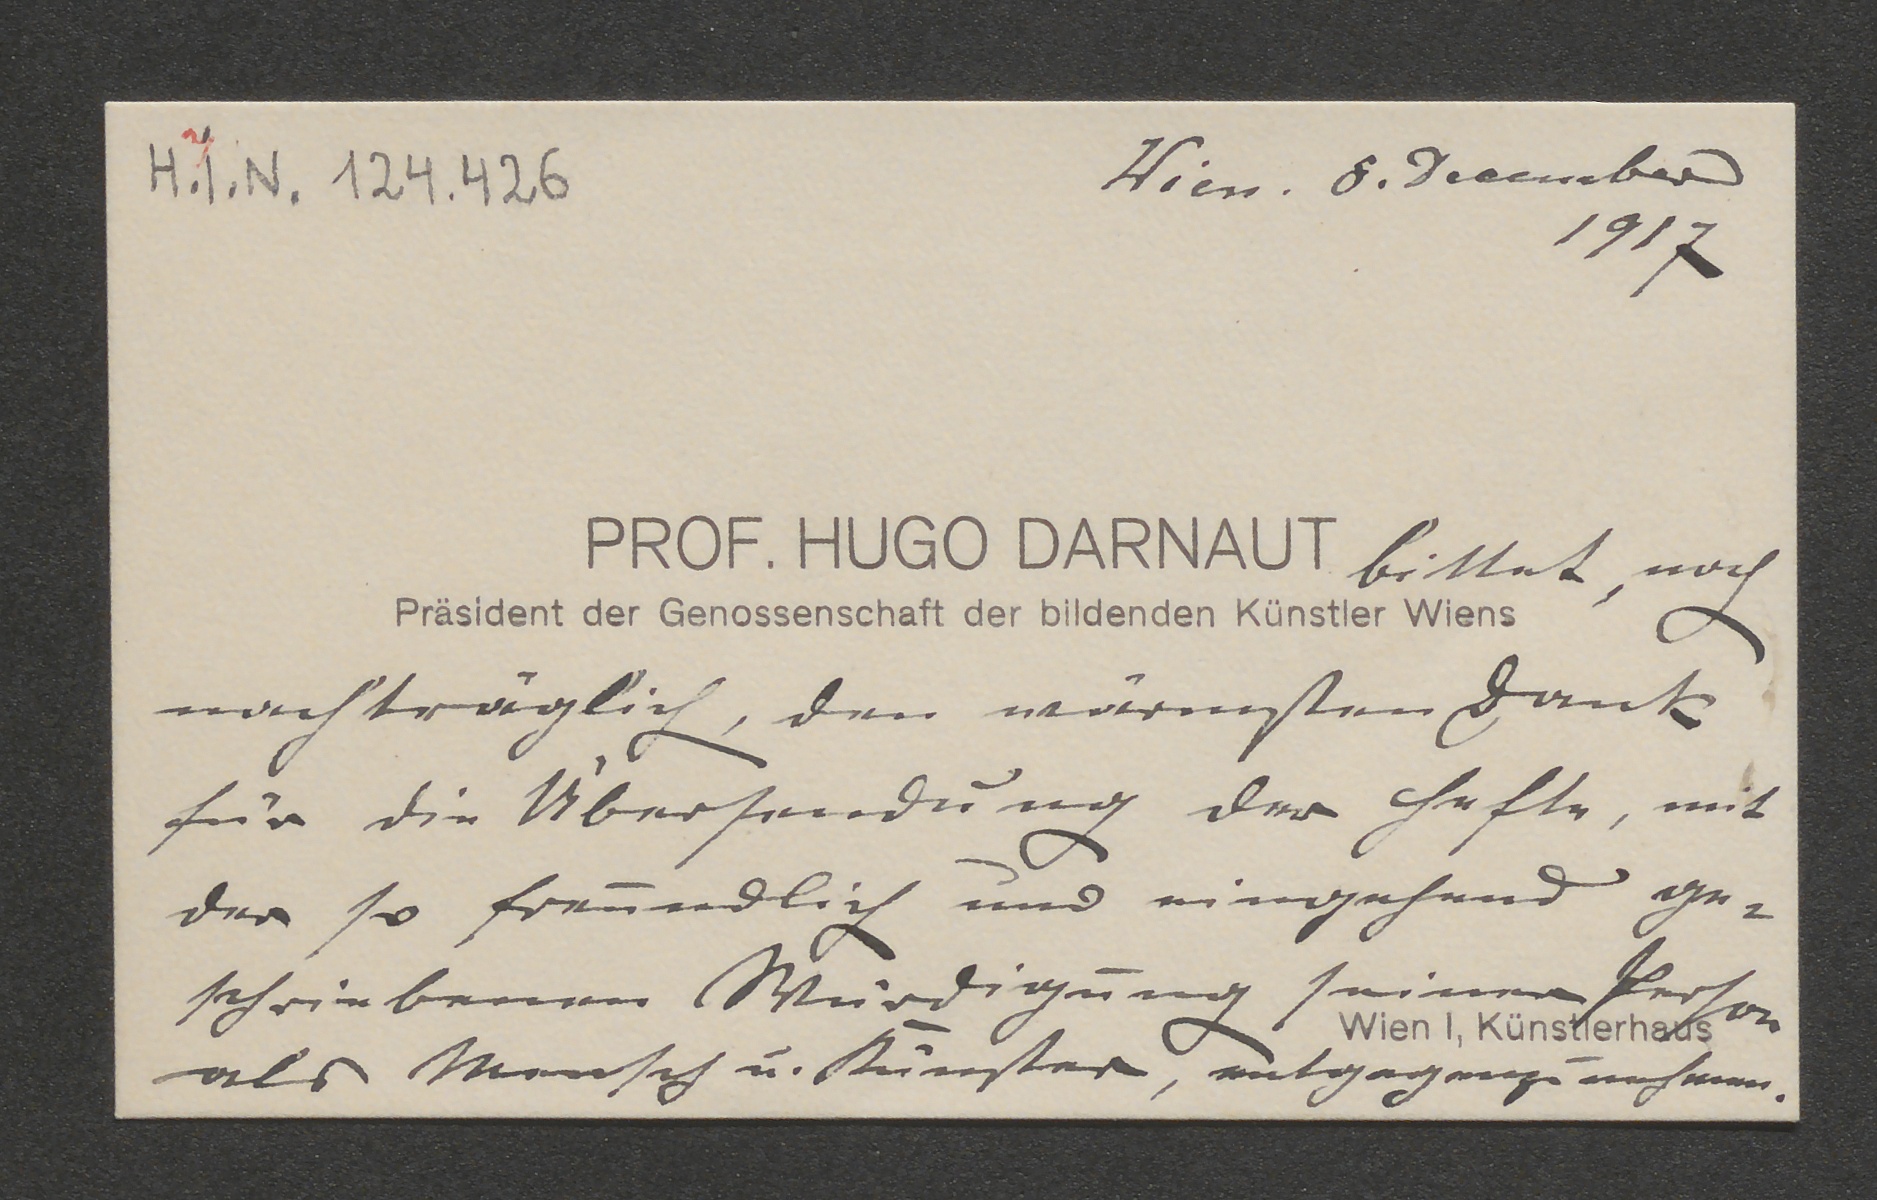 H.I.N. 124.426
Wien. 8. December
1917
PROF. HUGO DARNAUT bittet, noch
Präsident der Genossenschaft der bildenden Künstler Wiens
nachträglich, den wärmsten Dank
für die Übersendung der Hefte, mit
der so freundlich und eingehend ge-
schriebenen Würdigung seiner Person
Wien I, Künstlerhaus
als Mensch u. Künstler, entgegenzunehmen.